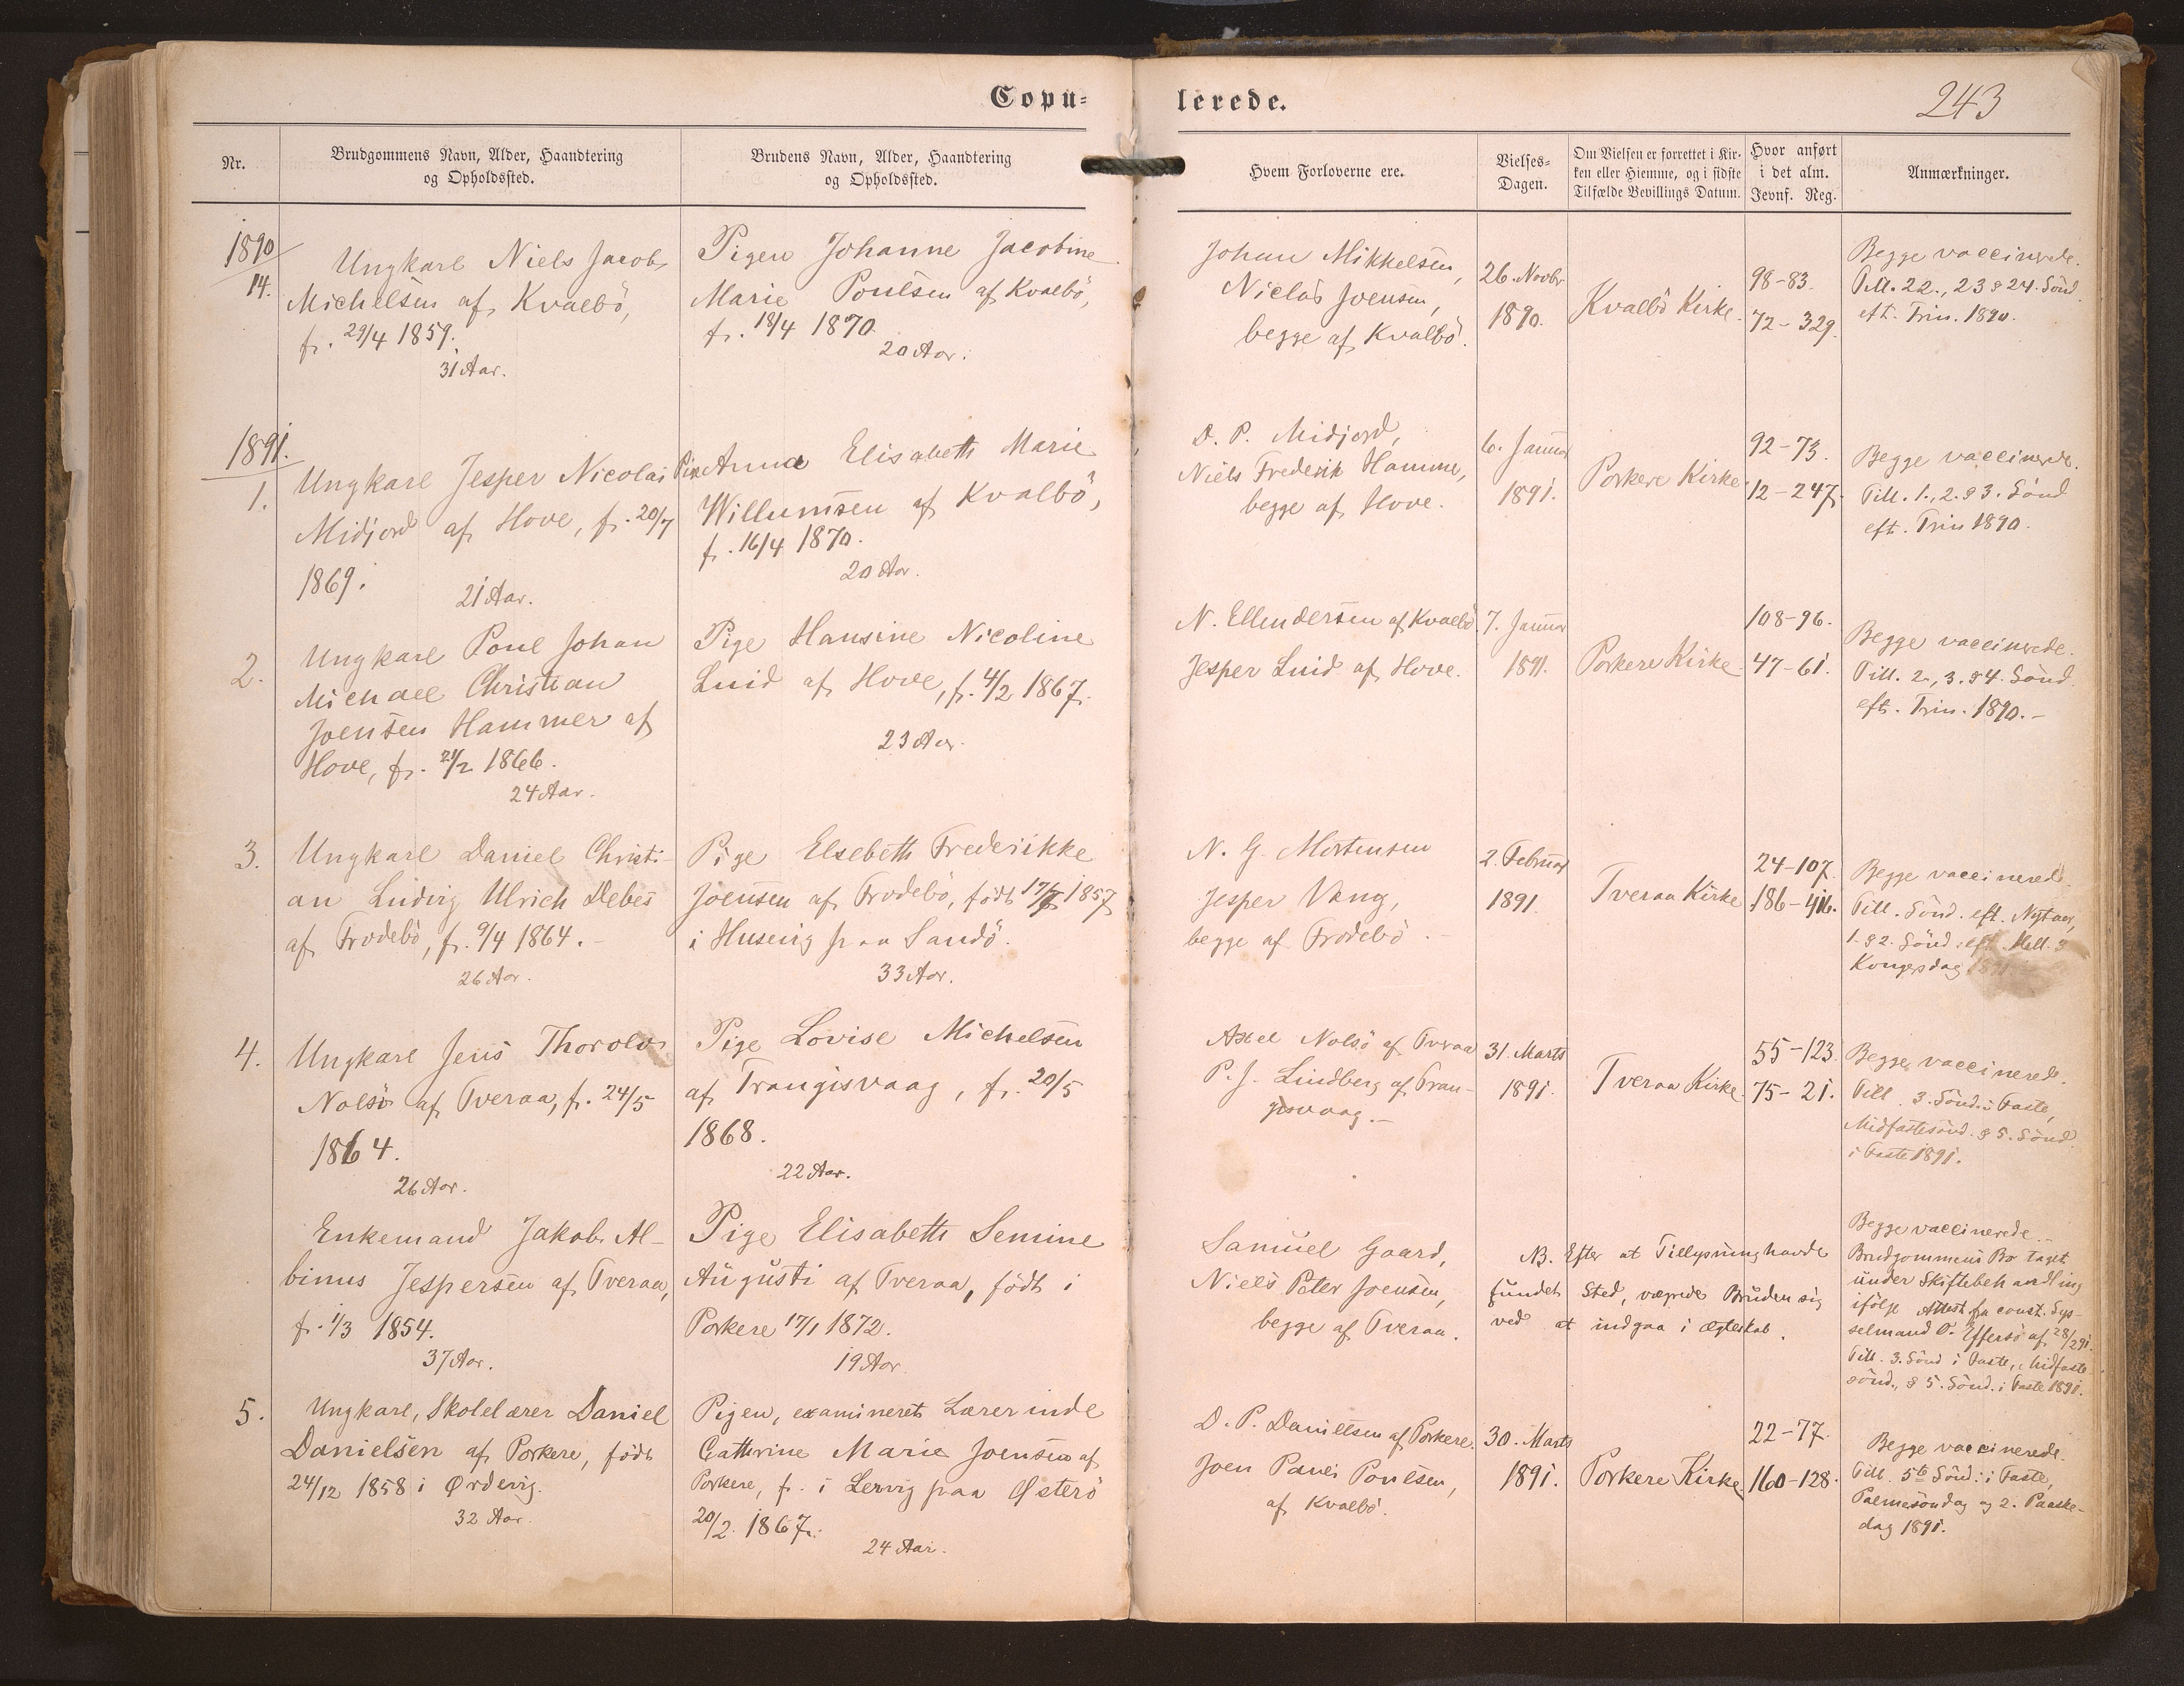 Copu-
lerede.
243
Nr.
Brudgommens Navn, Alder, Haandtering
og Opholdssted.
Brudens Navn, Alder, Haandtering
og Opholdssted.
Hvem Forloverne ere.
Vielses-
Dagen.
Om Vielsen er forrettet i Kir-
ken eller Hiemme, og i sidste
Tilfælde Bevillings Datum.
Hvor anført
i det alm.
Jevnf. Reg.
Anmærkninger.
1890
14.
Ungkarl Niels Jacob
Michelsen af Kvalbö,
f. 29/4 1859.
31 Aar.
Pigen Johanne Jacobine
Marie Poulsen af Kvalbö,
f. 18/4 1870.
20 Aar.
Johan Mikkelsen,
Niclas Joensen,
begge af Kvalbö.
26. Novbr
1890.
Kvalbö Kirke.
98-83.
72-329.
Begge vaccinerede.
Till. 22., 23 & 24. Sönd.
eft. Trin. 1890.
1891.
1.
Ungkarl Jesper Nicolai
Midjord af Hove, f. 20/7
1869.
21 Aar.
Pige Anna Elisabeth Marie
Willumsen af Kvalbö,
f. 16/4 1870.
20 Aar.
D. P. Midjord,
Niels Frederik Hammer,
begge af Hove.
6. Januar
1891.
Porkere Kirke
92-73.
12-247.
Begge vaccinerede.
Till. 1., 2. & 3. Sönd
eft. Trin 1890.
2.
Ungkarl Poul Johan
Michael Christian
Joensen Hammer af
Hove, f. 24/2 1866.
24 Aar.
Pige Hansine Nicoline
Luid af Hove, f. 4/2 1867.
23 Aar.
N. Ellendersen af Kvalbö.
Jesper Luid af Hove.
7. Januar
1891.
Porkere Kirke.
108-96.
47-61.
Begge vaccinerede.
Till. 2., 3. & 4. Sönd.
eft. Trin. 1890.-
3.
Ungkarl Daniel Christi-
an Ludvig Ulrich Debes
af Frodebö, f. 9/4 1864.-
26 Aar.
Pige Elsebeth Frederikke
Joensen af Frodebö, födt 1857
i Husevig paa Sandö.
33 Aar.
N. G. Mortensen
Jesper Vang,
begge af Frodebö.-
2. Februar
1891.
Tveraa Kirke
24-107.
186-416.
Begge vaccinerede.
Till. Sönd. eft. Nytaar,
1. & 2. Sönd. eft. Hell. 3
Kongersdag
4.
Ungkarl Jens Thorolv
Nolsö af Tveraa, f. 24/5
1864.
26 Aar.
Pige Lovise Michelsen
af Trangisvaag, f. 20/5
1868.
22 Aar.
Axel Nolsö af Tveraa
P. J. Lindberg af Tran-
gisvaag.-
31. Marts
1891.
Tveraa Kirke.
55-123.
75-21.
Begge vaccinerede.
Till. 3. Sönd. i Faste,
Midfastesönd. & 5. Sönd.
i Faste 1891.
Enkemand Jakob Al-
binus Jespersen af Tveraa,
f. 1/3 1854.
37 Aar.
Pige Elisabeth Semine
Augusti af Tveraa, födt i
Porkere 17/1 1872.
19 Aar.
Samuel Gaard,
Niels Peter Joensen,
begge af Tveraa.
NB. Efter at Tillysning havde
fundet Sted, vægrede Bruden sig
ved at indgaa i Ægteskab.
Begge vaccinerede.-
Brudgommens Bo taget
under Skiftebehandling
ifölge Attest fra const. Sys-
selmand O. Effersö af 28/2 91.
Till. 3. Sönd i Faste, Midfaste-
sönd., & 5. Sönd. i Faste 1891.
5.
Ungkarl, Skolelærer Daniel
Danielsen af Porkere, födt
24/12 1858 i Ørdevig.
32 Aar.
Pigen, examineret Lærerinde
Cathrine Marie Joensen af
Porkere, f. i Lervig paa Østerö
20/2. 1867.
24 Aar.
D. P. Danielsen af Porkere.
Joen Pauli Poulsen,
af Kvalbö.
30. Marts
1891.
Porkere Kirke
22-77.
160-128.
Begge vaccinerede.
Till. 5te Sönd. i Faste,
Palmesöndag og 2. Paaske-
dag 1891.